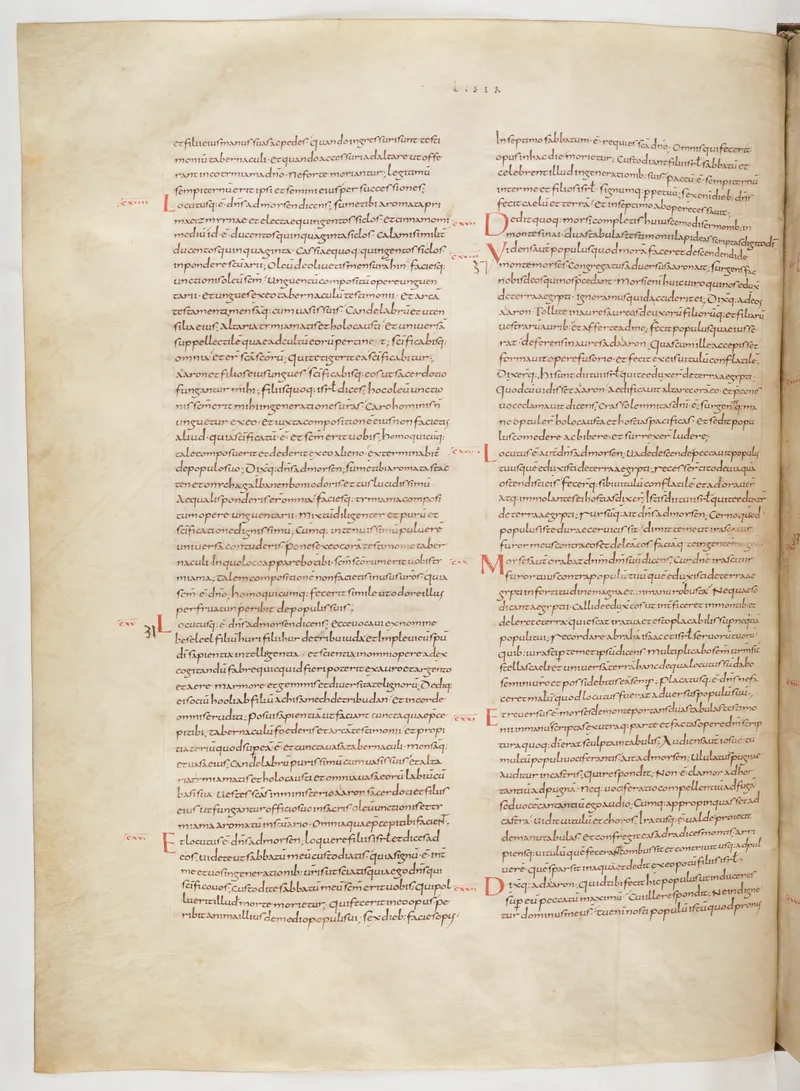 LIBER
et filii eius manus suas ac pedes quando ingressuri sunt testi
moniū tabernaculi. et quando accessuri ad altare ut offe
rant in eo thymiama dño. ne forte moriantur; legitimū
sempiternū erit ipsi et semini eius per successiones;
Locutusq; ē dñs ad mosen dicens; sume tibi aromata pri
ma et zmyrnae et electae quingentos siclos. et cinnamomi
mediū id ē ducentos quinquaginta siclos. calami similit
ducentos quinquaginta. Cassiae quoq; quingentos siclos
in pondere scuarii; Olei de olivetis mensurā hin. faciesq;
unctionis oleū scm̄. Unguentū compositū opere unguen
tarii. et ungues ex eo tabernaculū testimonii. et arcā
testamenti. mensāq; cum vasis suis. Candelabrū et uten
silia eius. Altaria thymiamatis et holocausti. et universā
suppellectilē quae ad cultū eorū pertinet; scificabisq;
omnia et erū sca scorū; qui tetigerit ea scificabitur;
Aaron et filios eius ungues scificabisq; eos ut sacerdotio
fungantur mihi; filiisq; isrł dices; hoc oleū unctio
nis scm̄ erit mihi in generationes uras; Caro hominis ñ
unguetur ex eo. et iuxta compositionē eius non facietis
aliud. quia scificatū ē. et scm̄ erit vobis; homo quicūq;
tale composuerit et dederit ex eo alieno. exterminabit
de populo suo; Dixitq; dñs ad mosen; sume tibi aromata stac
ten et onycha. galbanen boni odoris et tus lucidissimū
Aequalis ponderis erūt omnia faciesq; thymiama composi
tum opere unguentarii. Mixtū diligenter et purū et
scificatione dignissimū; Cumq; in tenuissimū pulverē
universa contuderis pones ex eo corā testimonio taber
naculi. In quo loco apparebo tibi. scm̄ scorum erit vobis
miama; talem compositione non facietis in usus uros. quia
scm̄ ē dño; homo quicumq; fecerit simile ut odore illius
perfruatur peribit de populis suis;
Locutusq; ē dñs ad mosen dicens; ecce vocavi ex nomine
beseleel filiū huri filii hur de tribu iuda. et implevi eū spū
di sapientia intellegentia. et scientia in omni opere ad ex
cogitandū fabre quicquid fieri poterit ex auro et argento
et aere. marmore et gemmis et diversitate lignorū; Dediq;
ei sociū hooliab filiū achisamech de tribu dan. et in corde
omnis eruditi. posui sapientiā ut faciant cuncta quae prece
pi tibi. tabernaculū foederis et arcā testimonii. et propi
tiatoriū quod sup eā ē. et cuncta vasa tabernaculi. mensāq;
et vasa eius. Candelabrū purissimū cum vasis suis. et alta
ria thymiamatis et holocausti et omnia vasa eorū labiū cū
basi sua. Vestes scas in ministerio aaron sacerdoti et filiis
eius ut fungantur officio suo in sacris. oleū unctionis et thy
miama aromatū in scuario. Omnia quae praecepi tibi faciēt.
Et locutus ē dñs ad mosen; loquere filiis isrł et dices ad
eos; videte ut sabbatū meū custodiatis. quia signū ē int
me et vos in generationib: uris ut sciatis quia ego dñs qui
scifico vos; Custodite sabbatū meū scm̄ ē enim vobis. qui pol
luerit illud morte morietur; qui fecerit in eo opus pe
ribit anima illius de medio populi sui; sex dieb; facietis opus
In septimo sabbatum ē requies sca dño. Omnis qui fecerit
opus in hac die morietur; Custodiant filii isrł sabbatū et
celebrent illud in generationib: suis; pactū ē sempiternū
inter me et filios isrł. signumq; ppetuū; sex enim dieb; dñs
fecit caelū et terrā. et in septimo ab opere cessavit;
Deditq; mosi completis huiuscemodi sermonib: in
monte sinai. duas tabulas testimonii lapideas scriptas digito dī
Videns aut populus quod morā faceret descendendi de
monte moses. Congregatus adversus aaron ait; surge fac
nobis deos qui nos pcedant. Mosi enim huic viro qui nos edux
de terra aegypti. ignoramus quid acciderit ei; Dixitq; ad eos
Aaron. Tollite inaures aureas de uxorū filiorūq; et filiarū
urarū aurib: et afferte ad me; fecit populus quae iusse
rat. deferens inaures ad aaron. Quas cum ille accepisset
formavit opere fusorio. et fecit ex eis vitulū conflatilē.
Dixerq; hi sunt di tui isrł. qui te eduxer̄ de terra aegypti.
Quod cū vidisset aaron. aedificavit altare corā eo. et p̄conis
voce clamavit dicens; cras sollemnitas dñi ē; surgentesq; ma
ne optuler̄ holocausta et hostias pacificas. et sedit popu
lus comedere ac bibere. et surrexer̄ ludere;
Locutus ē aut dñs ad mosen; Vade descende peccavit populus
tuus que eduxisti de terra aegypti; recesser̄ cito de via quā
ostendisti eis. fecerq; sibi vitulū conflatile et adoraver̄
atq; immolantes ei hostias dixer̄; Isti s̄ di tui isrł qui te eduxer̄
de terra aegypti; rursūq; ait dñs ad mosen; Cerno quod
populus iste durae cervicis sit. dimitte me ut irascatur
furor meus contra eos et deleā eos. faciāq; te in gente magnā
Moses aut orabat dñm dm̄ suū dicens; Cur dñe irascitur
furor tuus contra populū tuū que eduxisti de terra ae
gypti. in fortitudine magna et in manu robusta; Ne quaeso
dicant aegyptii. Callide eduxit eos ut interficeret in montib: et
deleret e terra. quiescat ira tua et esto placabilis sup nequitia
populi tui; recordare abrahā isaac et isrł servorū tuorū
quib: iurasti p temet ipsū dicens; multiplicabo semen urm̄ sic
stellas caeli. et universā terrā hanc de qua locutus sū dabo
semini uro et possidebitis eā semp; placatusq; ē dñs ne fa
ceret malū quod locutus fuerat adversus populū suū.
Et reversus ē moses de monte portans duas tabulas testimo
nii in manu scriptas ex utraq; parte et factas opere di; scrip
tura quoq; di erat sculpta in tabulis. Audiens aut iosue tu
multū populi vociferantis ait ad mosen; Ululatus pugnae
auditur in castris. Qui respondit; Non ē clamor adhor
tantiū ad pugnā. Neq; vociferatio compellentiū ad fugā
sed vocē cantantiū ego audio. Cumq; appropinquasset ad
castra. vidit vitulū et choros. Iratusq; ē valde proiecit
de manu tabulas. et confregit eas ad radicē montis arri
piensq; vitulū quē fecerant combussit et contrivit usq; ad pul
verē. quē sparsit in aqua et dedit ex eo potū filiis isrł.
Dixitq; ad aaron; quid tibi fecit hic populus ut induceres
sup eū peccatū maximū. Cui ille respondit; Ne indigne
tur dominus meus. tu enim nosti populū istū quod pronus